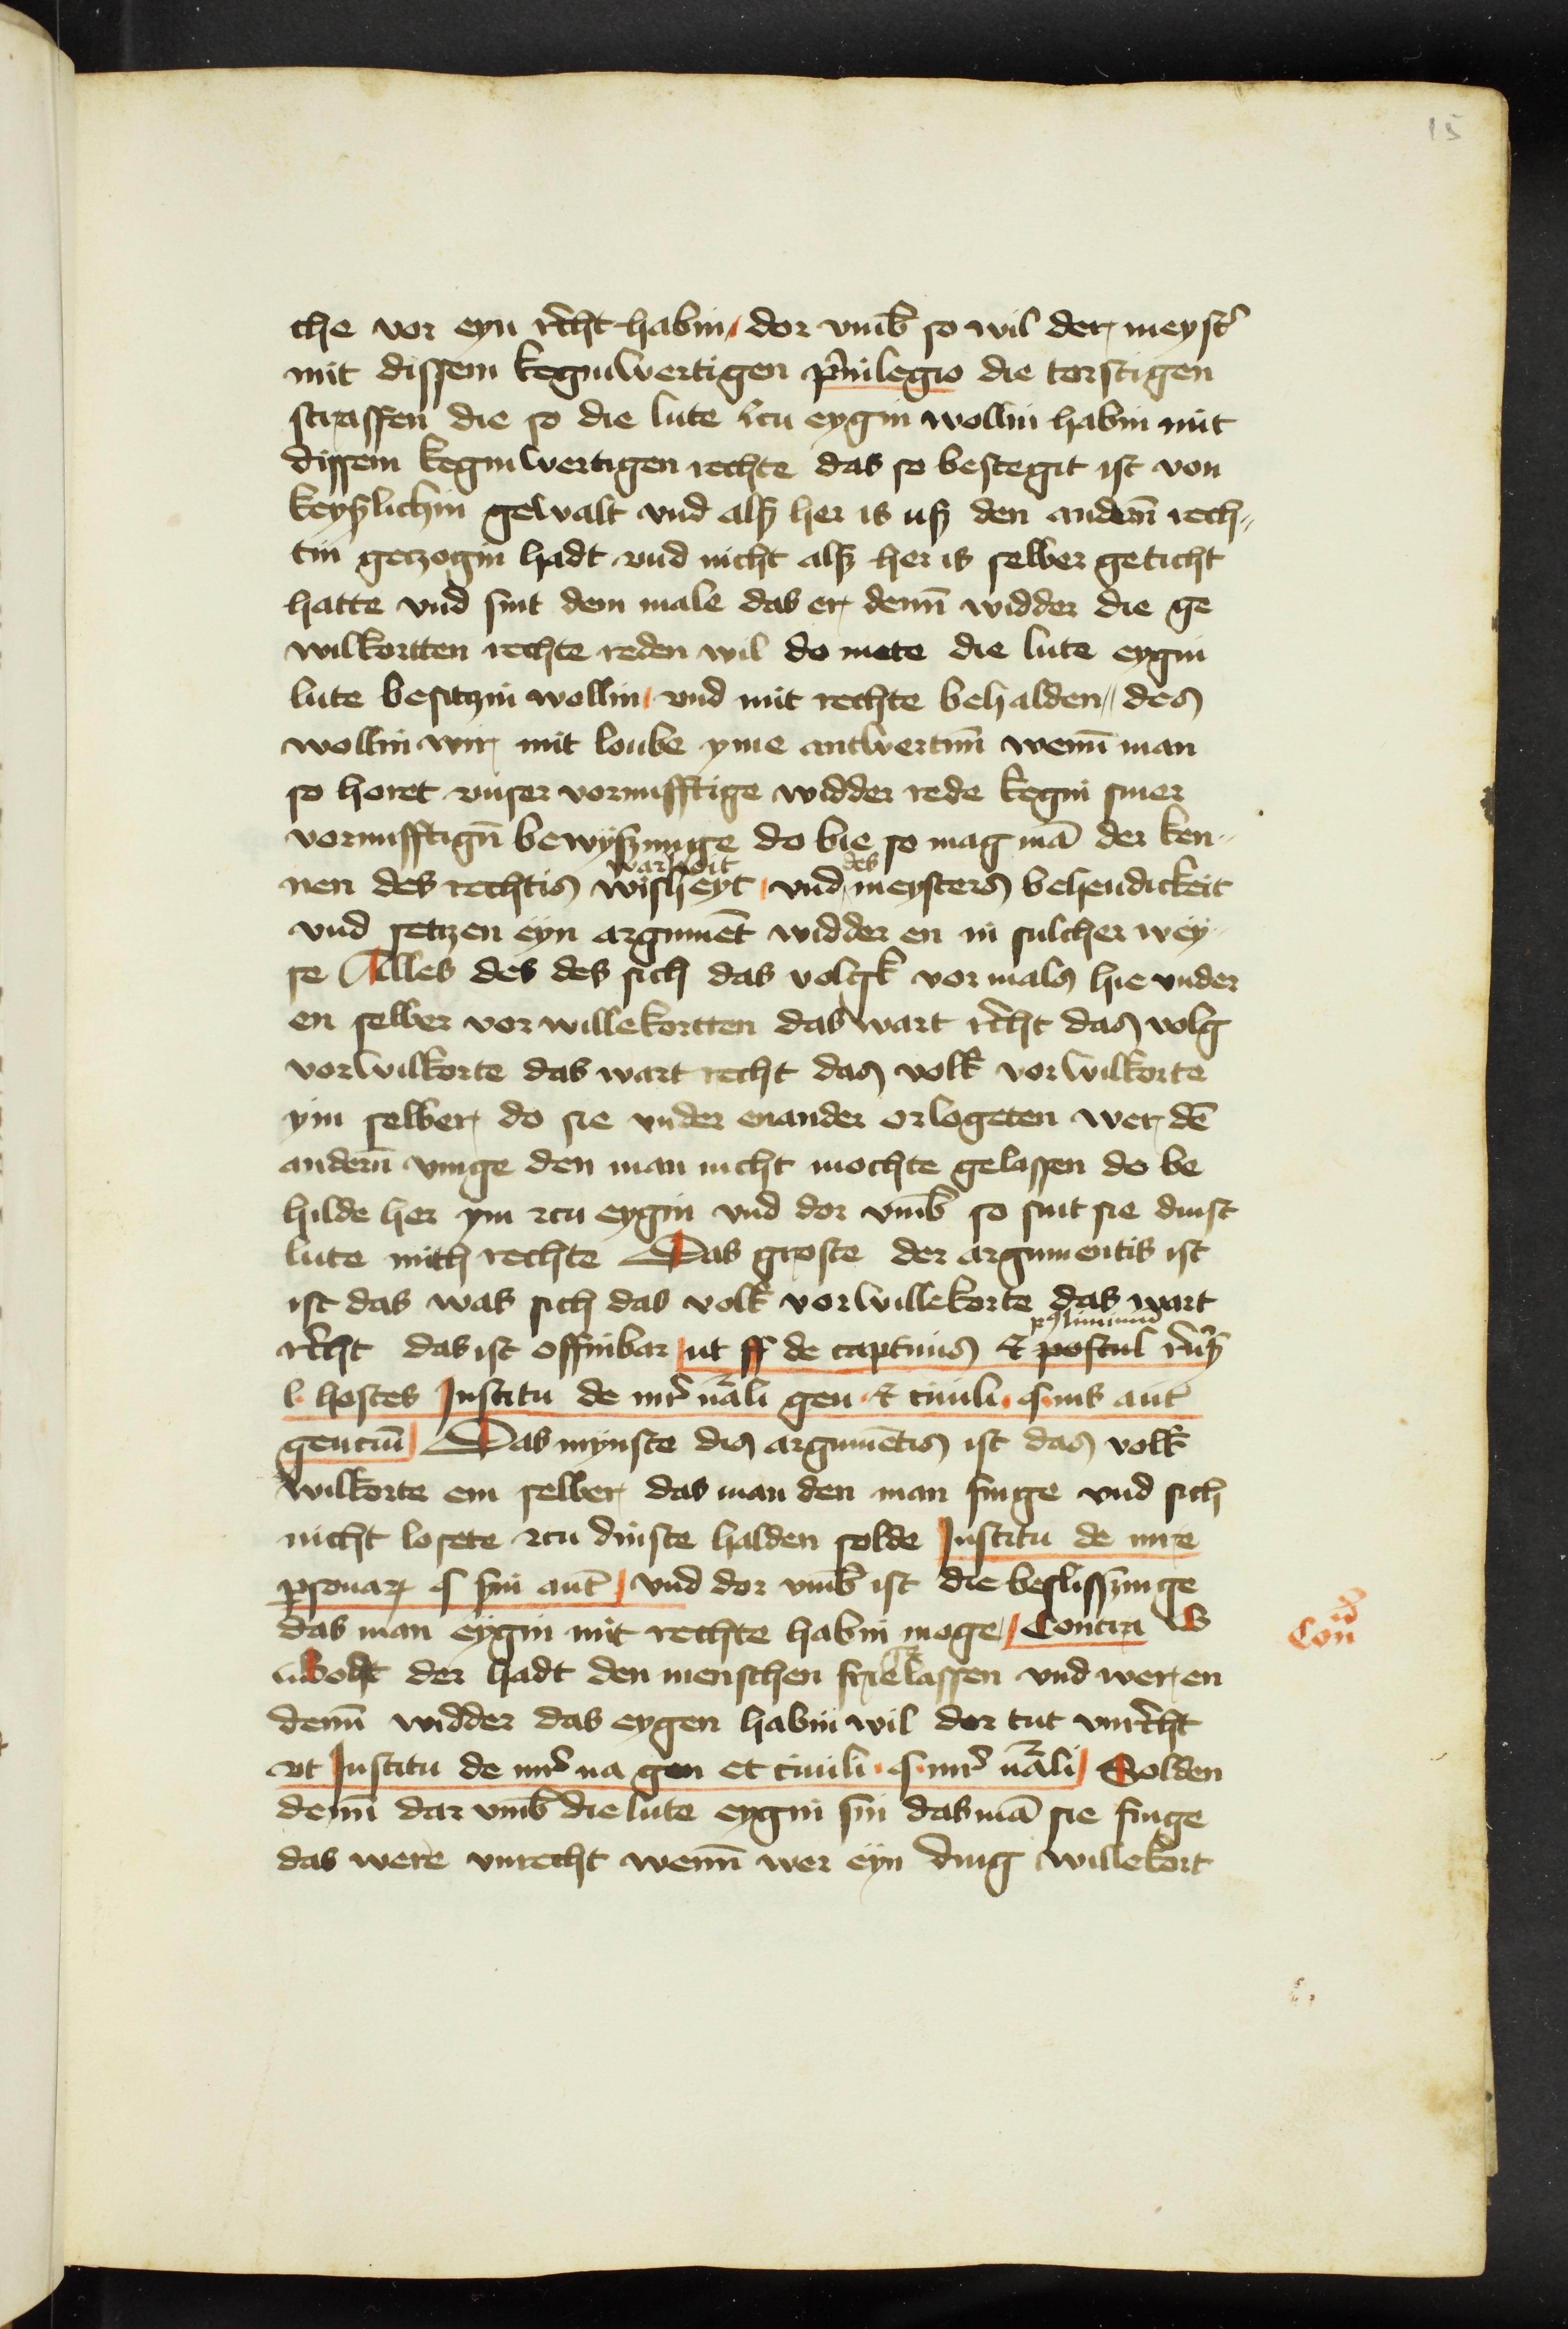 15
che vor eyn rͤcht habin / dor vmb̄ so wil der meystˀ
mit dissem keginwertigen pͥuilegio die torstigen
straffen die so die lute czu eygin wollin habin mit
dissem keginwertigen rechte das so bestegit ist von
keyszlichin gewalt vnd alsz her is usz den andern̄ rech〃
tin geczogin hadt vnd nicht alsz her is selber geticht
hatte vnd sint dem male das er denn̄ widder die ge
wilkortten rechte reden wil do mete die lute eygin
lute besitzin wollin / vnd mit rechte behalden // des
wollin wir mit loube yme antwertinn̄ wenn̄ man
so horet vnser vornufftige widder rede kegin siner
vornufftign̄ bewyszunge do bie so mag mā der ken〃
warheit des
nen des rechtis wisheyt / vnd meysters behendickeit
vnd setzen eyn argumēt widder en in sulcher wey〃
se Alles des des sich das volgk vor mals hie vnder
en selber vor willekortten das wart rͤcht das volg
vorwilkorte das wart recht das volk vorwilkorte
ym selber do sie vnder enander orlogeten wer dē
andern̄ vinge den man nicht mochte gelassen do be
hilde her ym czu eygin vnd dor vmb̄ so sint sie dinst
lute mith rechte Das groste der argumentis ist
ist das was sich das volk vorwillekorte das wart
rͤcht das ist offinbar / ut ff de captiuis & postul
l· hostes Institu de iurͤ nāli gen · & ciuili · § ius aut̄
genciū / Das mynste dis argumētis ist das volk
wilkorte em selber das man den man finge vnd sich
nicht losete czu dinste halden solde Institu de iure
ꝑsonar § sin aut̄ / vnd dor vmb̄ ist die beslissunge
das man eygin mit rechte habin moge / Contra
der hadt den menschen frie lassen vnd wer en
denn̄ widder das eygen habin wil der tut vnrͤcht
vt Institu de iurͤ na gen et ciuili · § iurͤ nāli / Solden
denn̄ dar vmb̄ die lute eygin sin das mā sie finge
das were vnrecht wenn̄ wer eyn ding willekort
Con̄